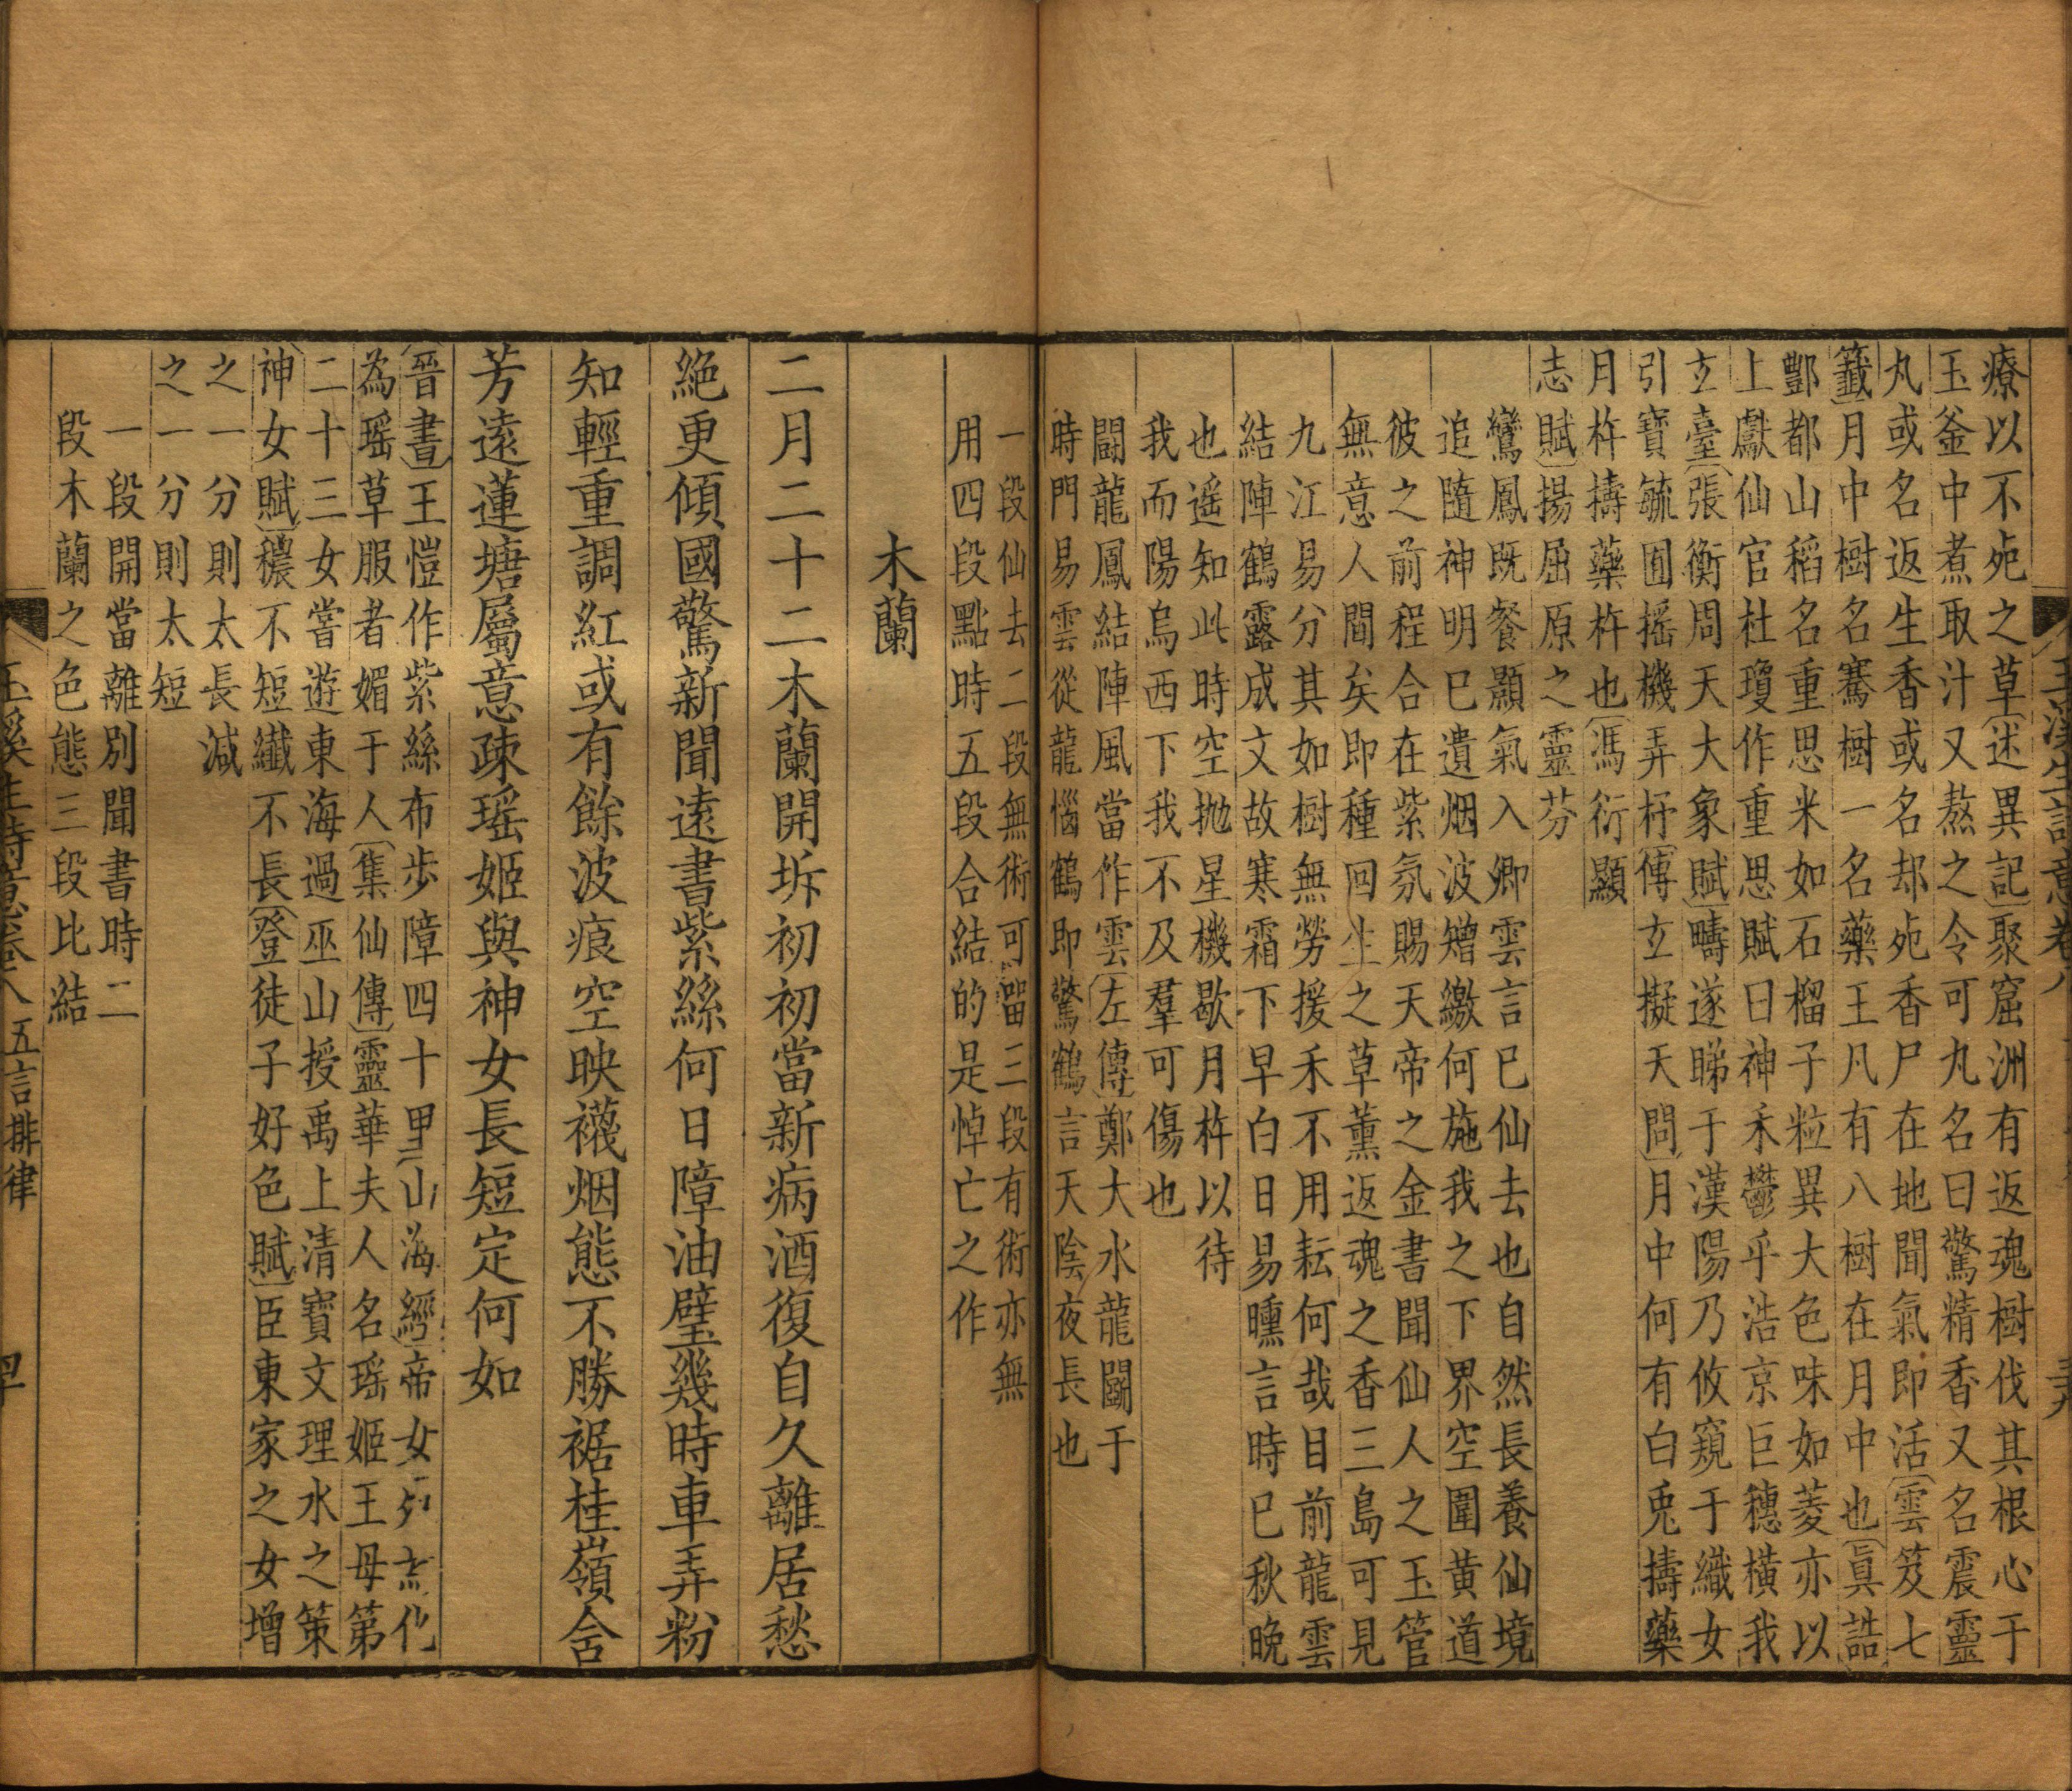 療以不死之草〔述異記〕聚窟洲有返魂樹伐其根心于
玉釜中煮取汁又熬之令可丸名曰驚精香又名震靈
丸或名返生香或名却死香尸在地聞氣即活〔雲笈七
籤〕月中樹名騫樹一名藥王凡有八樹在月中也〔真誥〕
酆都山稻名重思米如石榴子粒異大色味如菱亦以
上獻仙官杜瓊作重思賦曰神禾鬱乎浩京巨穗橫我
玄臺〔張衡周天大象賦〕疇遂睇于漢陽乃攸窺于織女
引寶毓囿搖機弄杼〔傳玄擬天問〕月中何有白兎擣藥
月杵擣藥杵也〔馮衍顯
志賦〕揚屈原之靈芬
鸞鳳既餐顥氣入卿雲言已仙去也自然長養仙境
追隨神明已遺烟波矰繳何施我之下界空圍黃道
彼之前程合在紫氛賜天帝之金書聞仙人之玉管
無意人間矣即種回生之草薰返魂之香三島可見
九江易分其如樹無勞援禾不用耘何哉目前龍雲
結陣鶴露成文故寒霜下早白日易曛言時已秋晚
也遥知此時空拋星機歇月杵以待
我而陽烏西下我不及羣可傷也
鬭龍鳳結陣風當作雲〔左傳〕鄭大水龍鬭于
時門易雲從龍惱鶴即驚鶴言天陰夜長也
一段仙去二段無術可留三段有術亦無
用四段點時五段合結的是悼亡之作
木蘭
二月二十二木蘭開坼初初當新病酒復自久離居愁
絕更傾國驚新聞遠書紫絲何日障油壁幾時車弄粉
知輕重調紅或有餘波痕空映襪烟態不勝裾桂嶺含
芳遠蓮塘屬意疎瑶姬與神女長短定何如
〔晉書〕王愷作紫絲布步障四十里〔山海經〕帝女化
為瑶草服者媚于人〔集仙傳〕靈華夫人名瑶姬王母第
二十三女嘗遊東海過巫山授禹上清寶文理水之策
〔神女賦〕穠不短纖不長〔登徒子好色賦〕臣東家之女增
之一分則太長減
之一分則太短
一段開當離別聞書時二
段木蘭之色態三段比結
玉溪生詩意卷八 五言排律